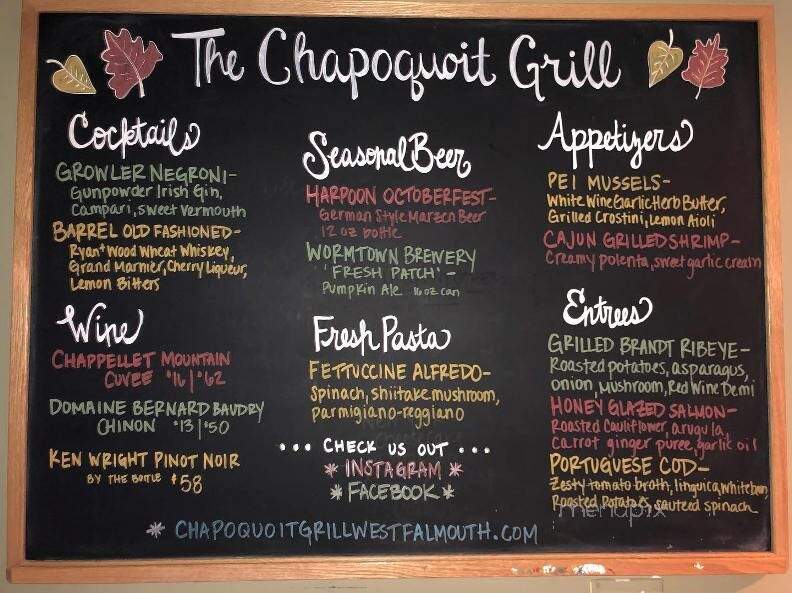 The Chapoquoit Grill
Cocktails
GROWLER NEGRONI-
Gunpowder Irish Gin,
Campari, sweet vermouth
BARREL OLD FASHIONED-
Ryan + Wood Wheat Whiskey,
Grand Marnier, Cherry Liqueur,
Lemon Bitters
Wine
CHAPPELLET MOUNTAIN
CUVEE $16 | $62
DOMAINE BERNARD BAUDRY
CHINON $13 | $50
KEN WRIGHT PINOT NOIR
BY THE BOTTLE $58
Seasonal Beer
HARPOON OCTOBERFEST-
German Style Marzen Beer
12 oz bottle
WORMTOWN BREWERY
'FRESH PATCH' -
Pumpkin Ale 16 oz can
Fresh Pasta
FETTUCCINE ALFREDO-
Spinach, shiitake mushroom,
parmigiano-reggiano
... CHECK US OUT ...
* INSTAGRAM *
* FACEBOOK *
Appetizers
PEI MUSSELS-
White Wine Garlic Herb Butter,
Grilled Crostini, Lemon Aioli
CAJUN GRILLED SHRIMP-
Creamy polenta, sweet garlic cream
Entrees
GRILLED BRANDT RIBEYE-
Roasted potatoes, asparagus,
onion, Mushroom, Red Wine Demi
HONEY GLAZED SALMON-
Roasted Cauliflower, arugula,
Carrot ginger puree, garlic oil
PORTUGUESE COD-
Zesty tomato broth, linguica, white bean,
Roasted Potatoes, sauteed spinach
menupix
* CHAPOQUOITGRILLWESTFALMOUTH.COM